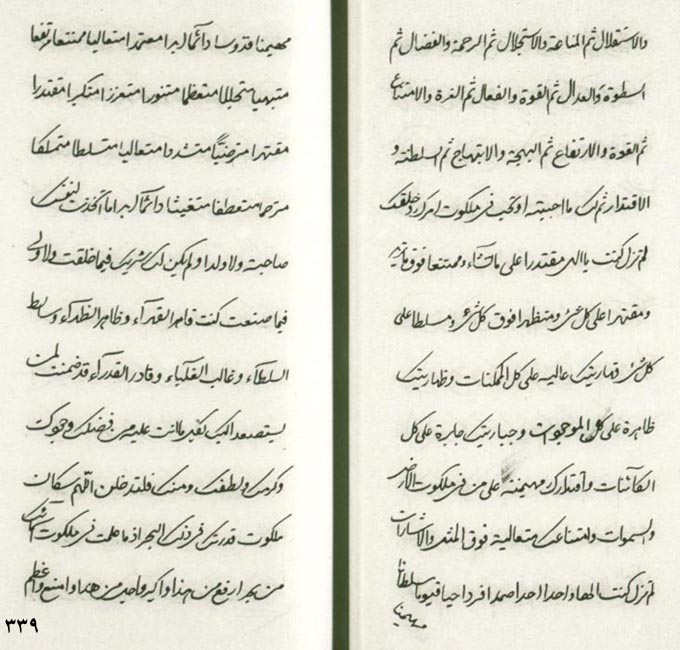 والاستقلال ثم المناعة والاستجلال ثم الرحمة والفضال ثم
السطوة والعدال ثم القوة والفعال ثم العزة والامتناع
ثم القوة والارتفاع ثم البهجة والابتهاج ثم السلطنة و
الاقتدار ثم لك ما احببته او تحب فى ملكوت امرك وخلقك
لم تزل كنت يا الهى مقتدرا على ما تشاء وممتنعا فوق ما تريد
ومقتهرا على كل شىء ومتظهرا فوق كل شىء ومسلطا على
كل شىء قهاريتك عاليه على كل الممكنات وظهاريتك
ظاهرة على كل الموجودات وجباريتك جابرة على كل
الكائنات واقتدارك مهيمنة على من فى ملكوت الارض
والسموات وامتناعك متعالية فوق المثل والاشارات
لم تزل كنت الها واحدا احدا صمدا فردا حيا قيوما سلطانا
مهيمنا
مهيمنا قدوسا دائما ابدا معتمدا متعاليا ممتنعا مرتفعا
متبهيا متجللا متعظما متنورا متعززا متكبرا مقتدرا
مقتهرا متسلطا متملكا
مترحما متعطفا متغيثا دائما ابدا ما اتخذت لنفسك
صاحبة ولا ولدا ولم يكن لك شريك فيما خلقت ولا ولى
فيما صنعت كنت قاهر القهراء وظاهر الظهراء وسالط
السلطاء وغالب الغلباء وقادر القدراء قد ضمنت لمن
يستصعد اليك من فضلك وجودك
وكرمك ولطفك ومنك فلتدخلن اللهم سكان
ملكوت قدرتك فى ذلك البحر اذ ما علمت فى ملكوت
من بحر ارفع من هذا واكبر واحد من هذا وامنع واعظم
٣٣٩